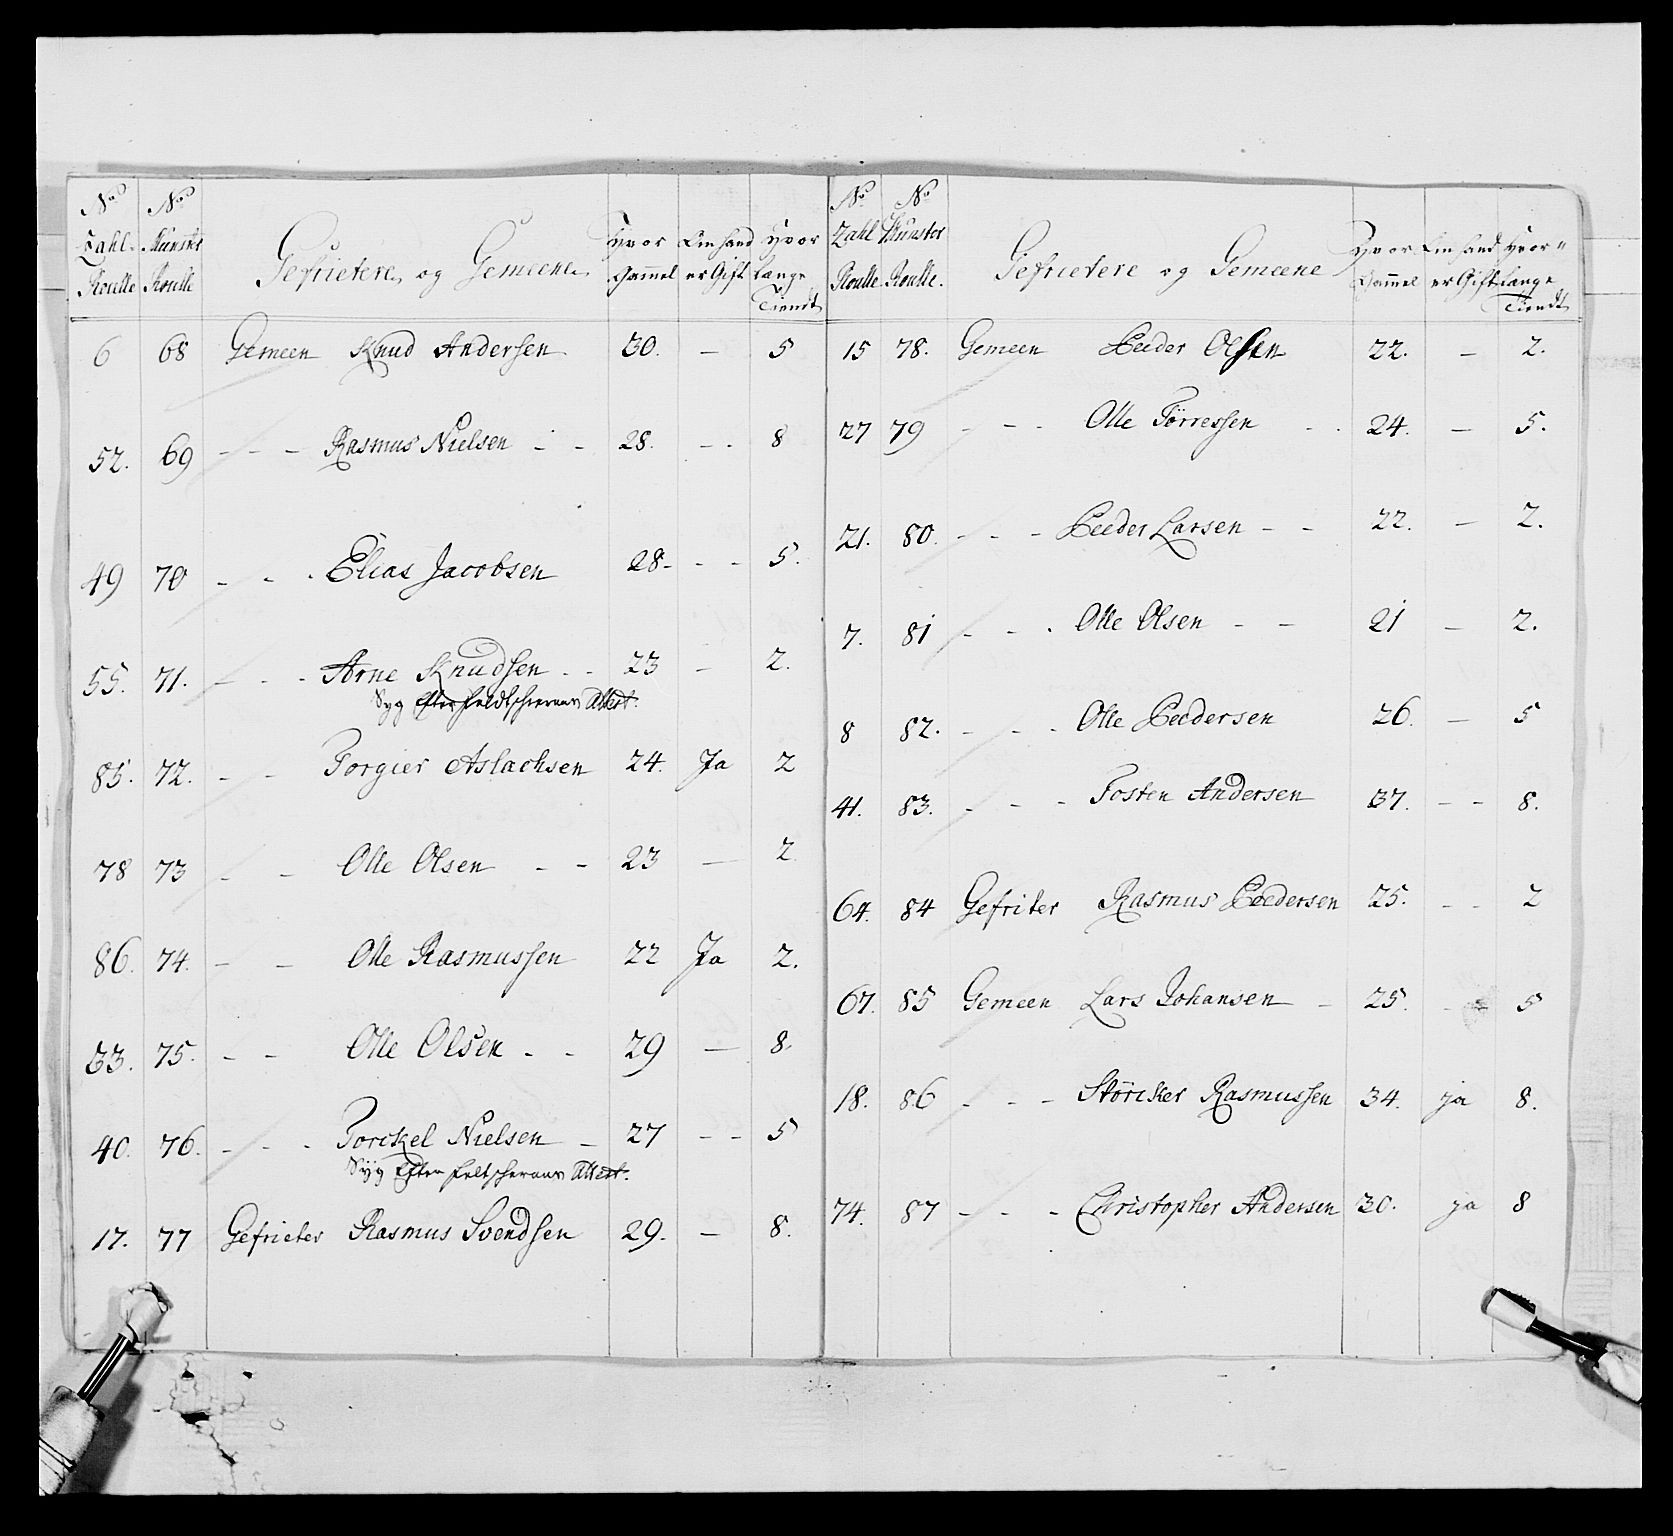 No No Hvor Hvor
Zahl Munster Gefrietere og Gemeene Gammel er Gift Længe
Roulle Roulle Tiendt
6 68 Gemeen Knud Andersen 30. — 5
52. 69 - - - Rasmus Nielsen - - 28. - - 8
49 70 - - - Elias Jacobsen 28 - - - 5.
55. 71. - - - Arne Knudsen - - 23 — 2.
Syg efter feldtscherens Attest.
85. 72. - - Torgier Aslachsen 24. Ja 2
78 73 - - Olle Olsen - - 23 — 2
86. 74. - - Olle Rasmussen 22 Ja 2.
33. 75. - - Olle Olsen - - 29 — 8.
40. 76. - - - Torckel Nielsen - 27 - - 5
Syg efter feltscherens Attest.
17. 77 Gefrieter Rasmus Svendsen 29. — 8.
No No
Zahl Munster Gefrietere og Gemeene Hvor Hvor
Roulle Roulle. Gammel er Gift Længe
Tiendt
15 78. Gemeen Peeder Olsen 22. — 2.
27 79 - - - Olle Törressen - - 24. — 5.
21. 80. - - - Peeder Larsen - - 22. — 2.
7. 81 - - - Olle Olsen - - 21 — 2.
8 82. - - - Olle Peedersen 26. — 5
41. 83. - - - Tosten Andersen 37. - - 8.
64. 84 Gefriter Rasmus Peedersen 25. - - 2
67. 85 Gemeen Lars Johansen - 25. - - 5
18. 86 - - - Störcker Rasmussen 34. ja 8.
74. 87 - - - Christopher Andersen 30. ja 8